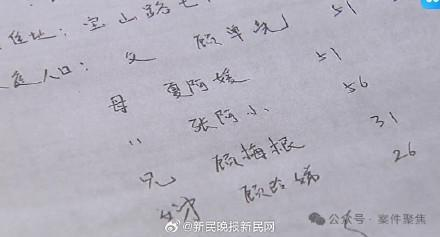 住址：宝山路七
家庭人口：父 顾单先 51
母 夏阿媛 51
〃 张阿小 56
兄 顾梅根 31
顾玲娣 26
@新民晚报新民网
公众号·案件聚焦